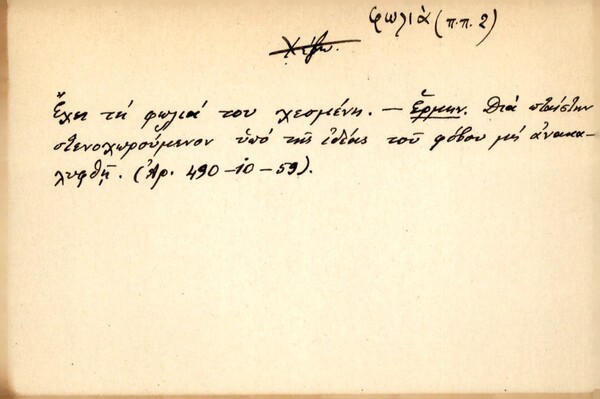 φωλιά (π.π. 2)
Χέζω.
Ἔχει τή φωλιά του χεσμένη. — Ἑρμην. Διά πταίστην
στενοχωρούμενον ὑπό τῆς ἰδέας τοῦ φόβου μή ἀνακα-
λυφθῇ. (Ἀρ. 490-10-59).